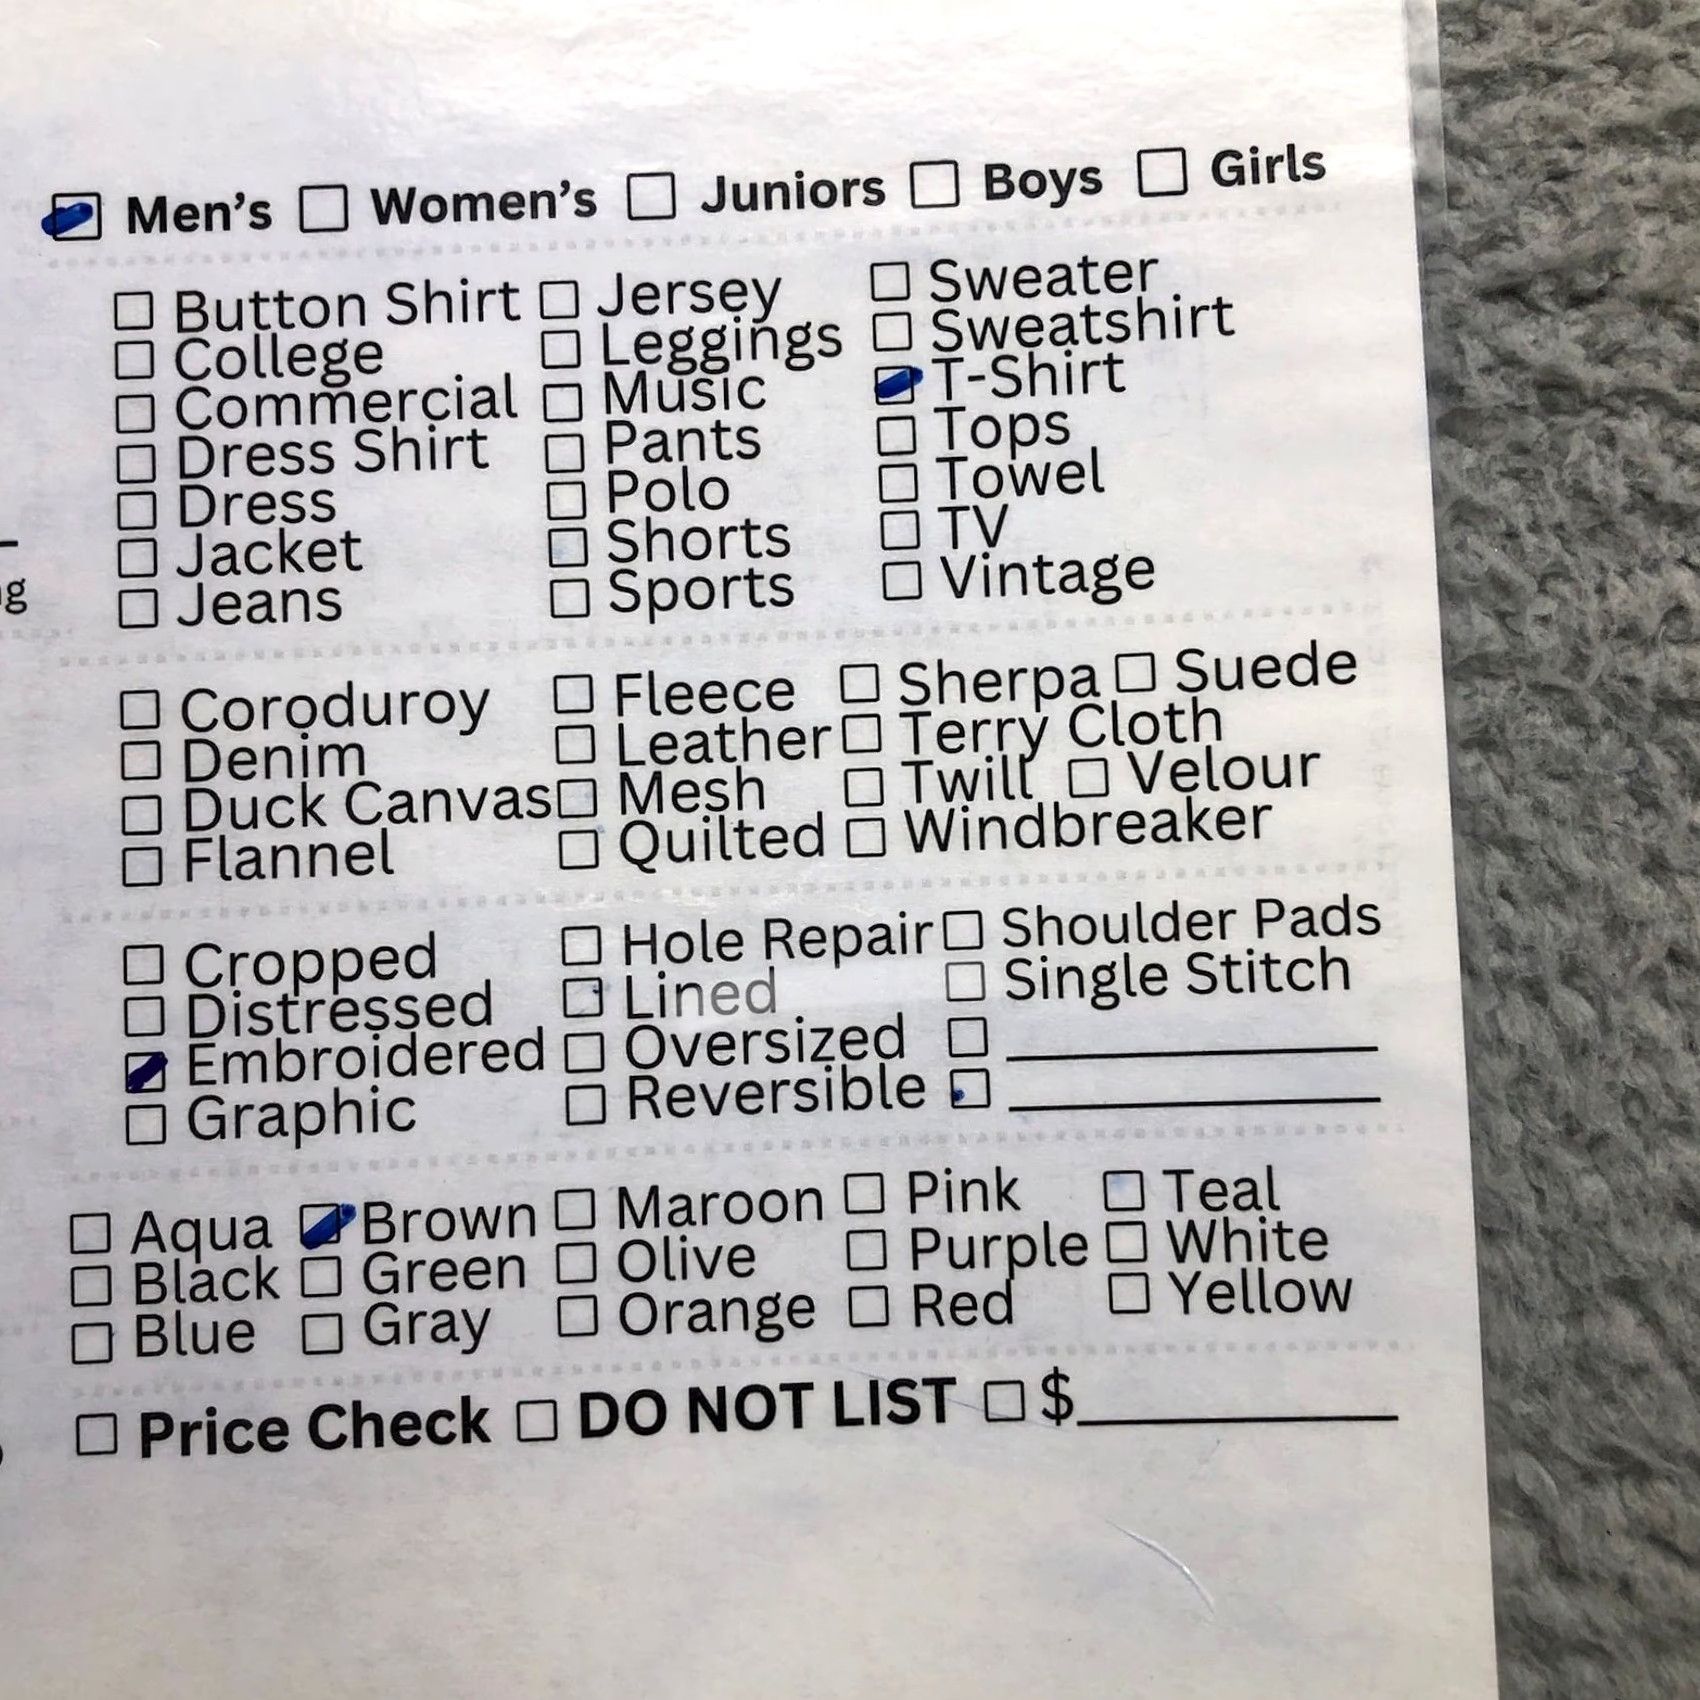 Men's Women's Juniors Boys Girls
Button Shirt Jersey Sweater
College Leggings Sweatshirt
Commercial Music T-Shirt
Dress Shirt Pants Tops
Dress Polo Towel
Jacket Shorts TV
Jeans Sports Vintage
Coroduroy Fleece Sherpa Suede
Denim Leather Terry Cloth
Duck Canvas Mesh Twill Velour
Flannel Quilted Windbreaker
Cropped Hole Repair Shoulder Pads
Distressed Lined Single Stitch
Embroidered Oversized
Graphic Reversible
Aqua Brown Maroon Pink Teal
Black Green Olive Purple White
Blue Gray Orange Red Yellow
Price Check DO NOT LIST $